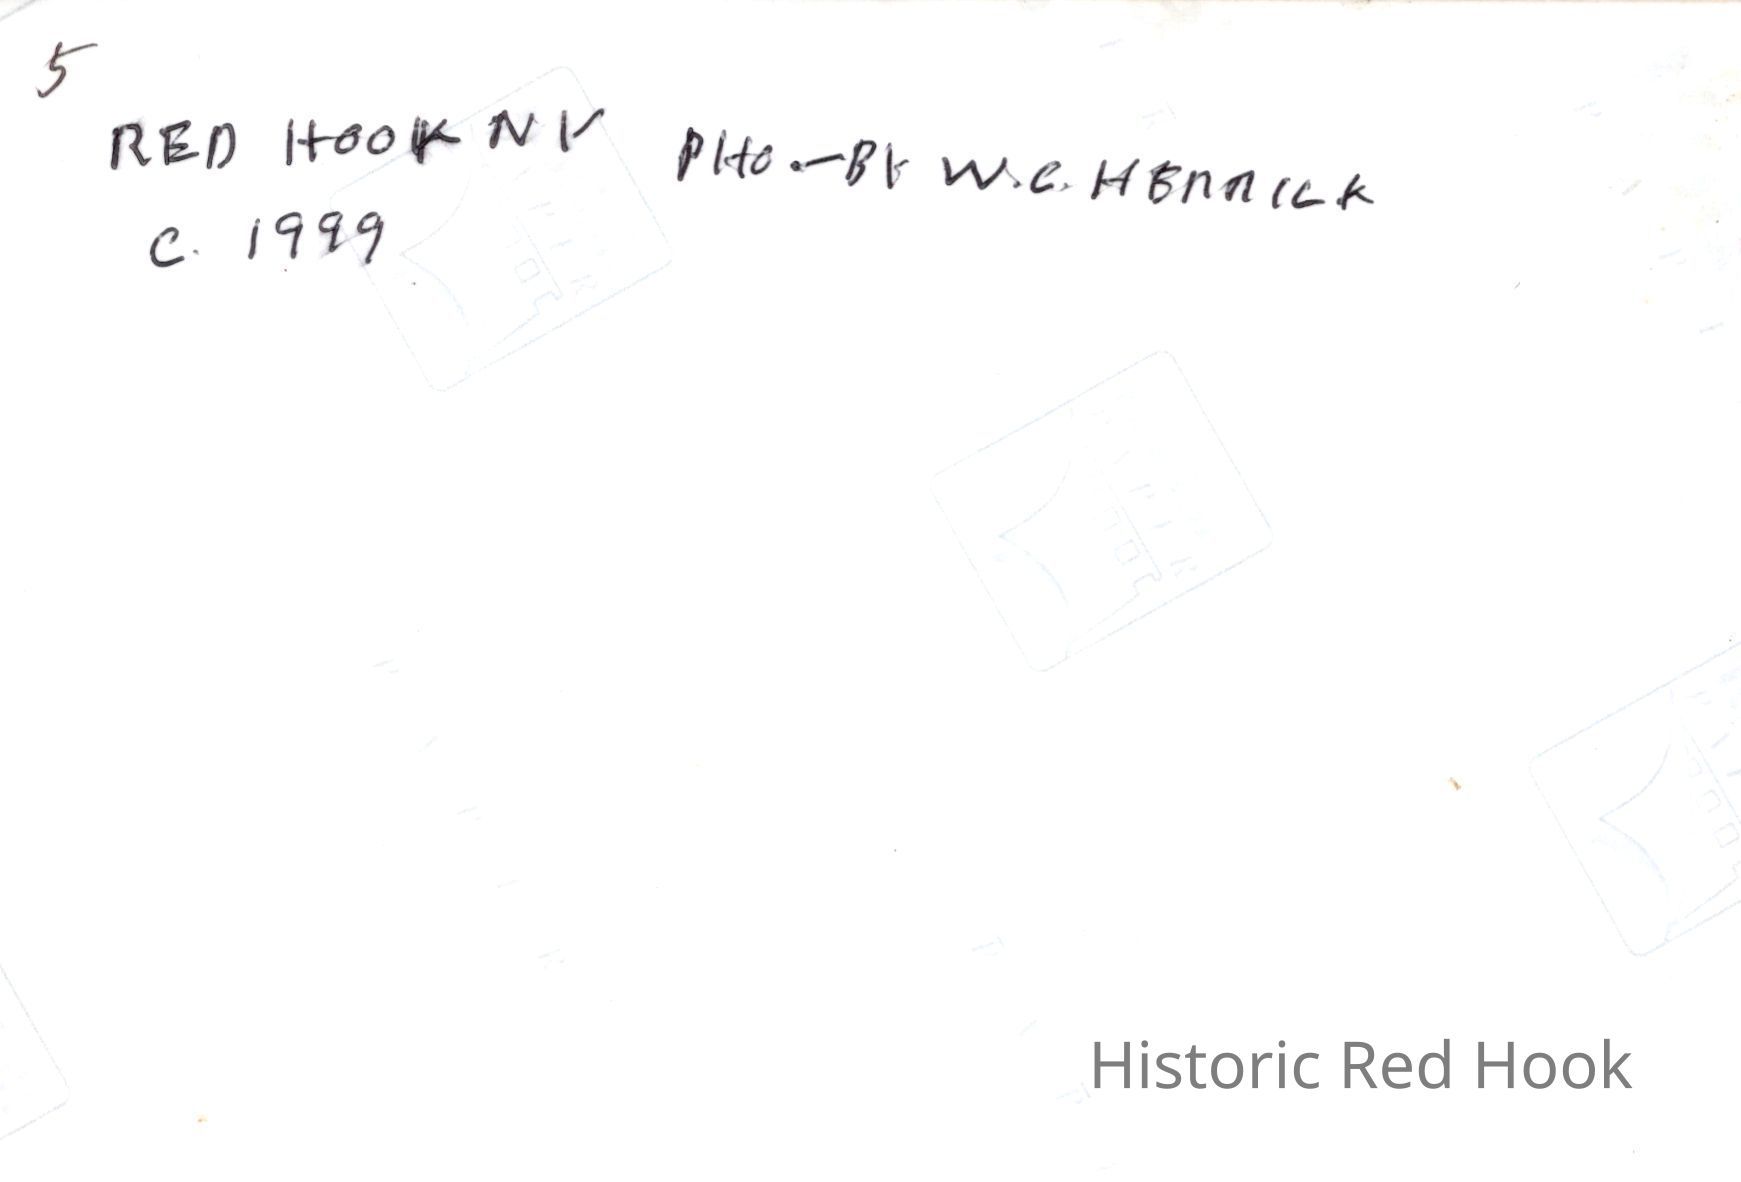 5
RED HOOK NY PHO.—BY W.C. HERRICK
C. 1999
Historic Red Hook